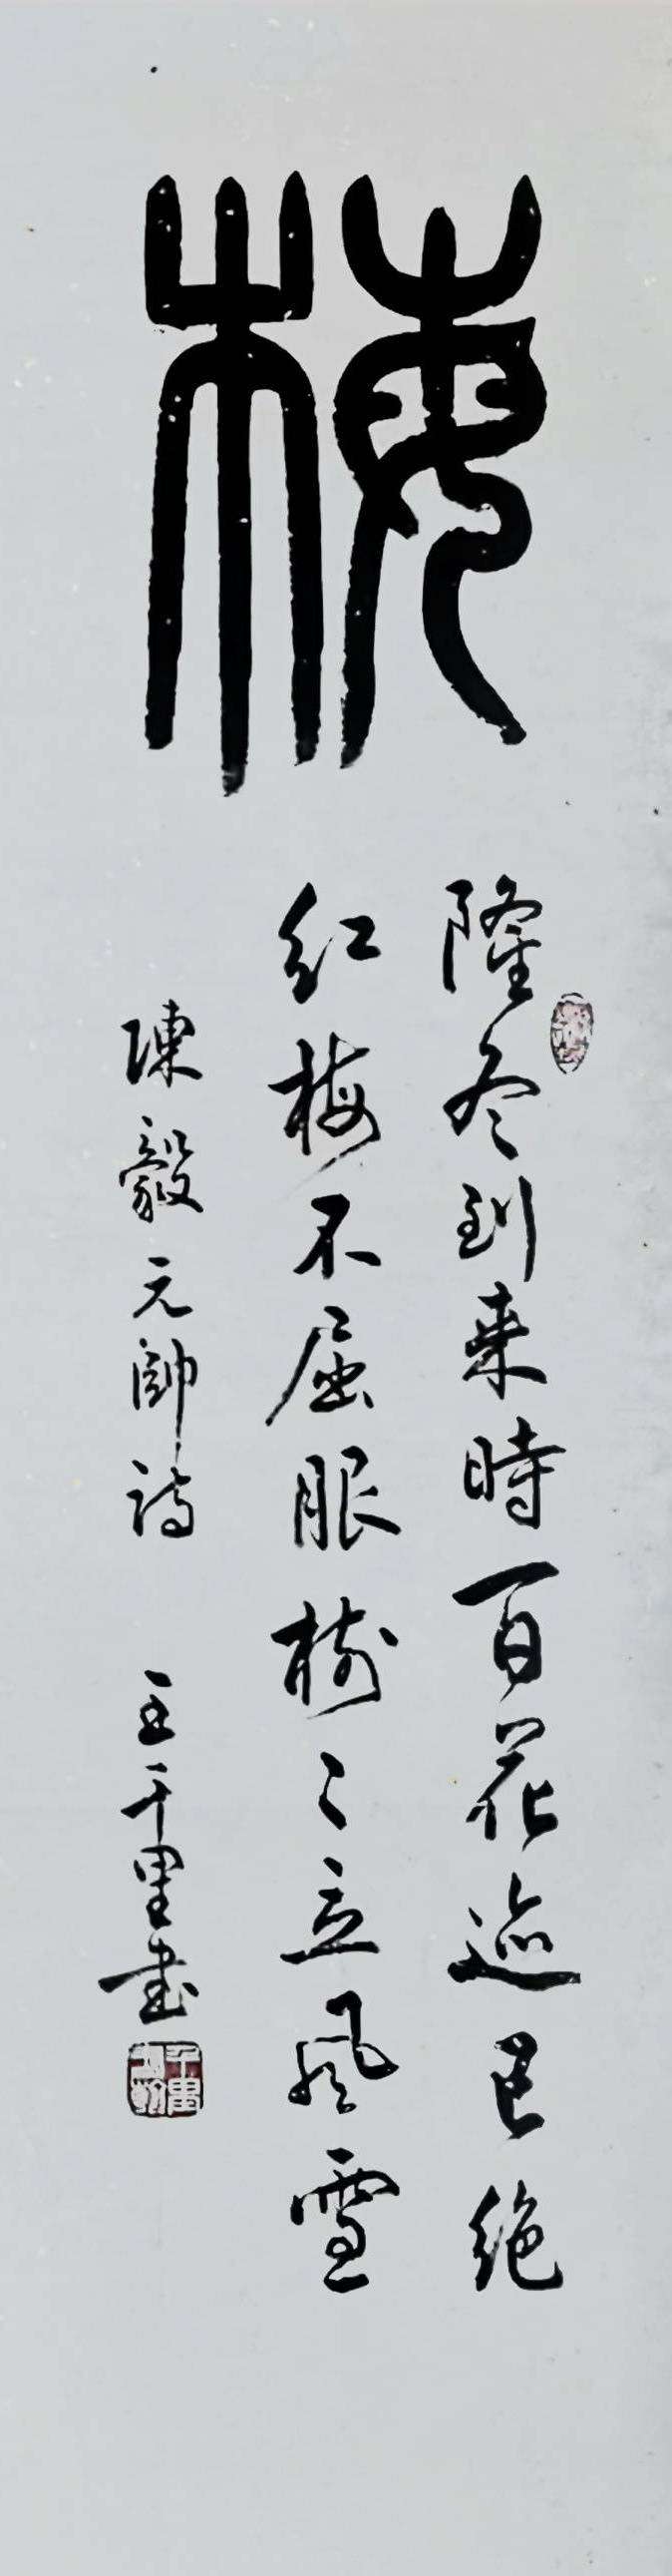 梅
隆冬到来時百花迹已絶
红梅不屈服樹々立風雪
陳毅元帥詩
王千里書